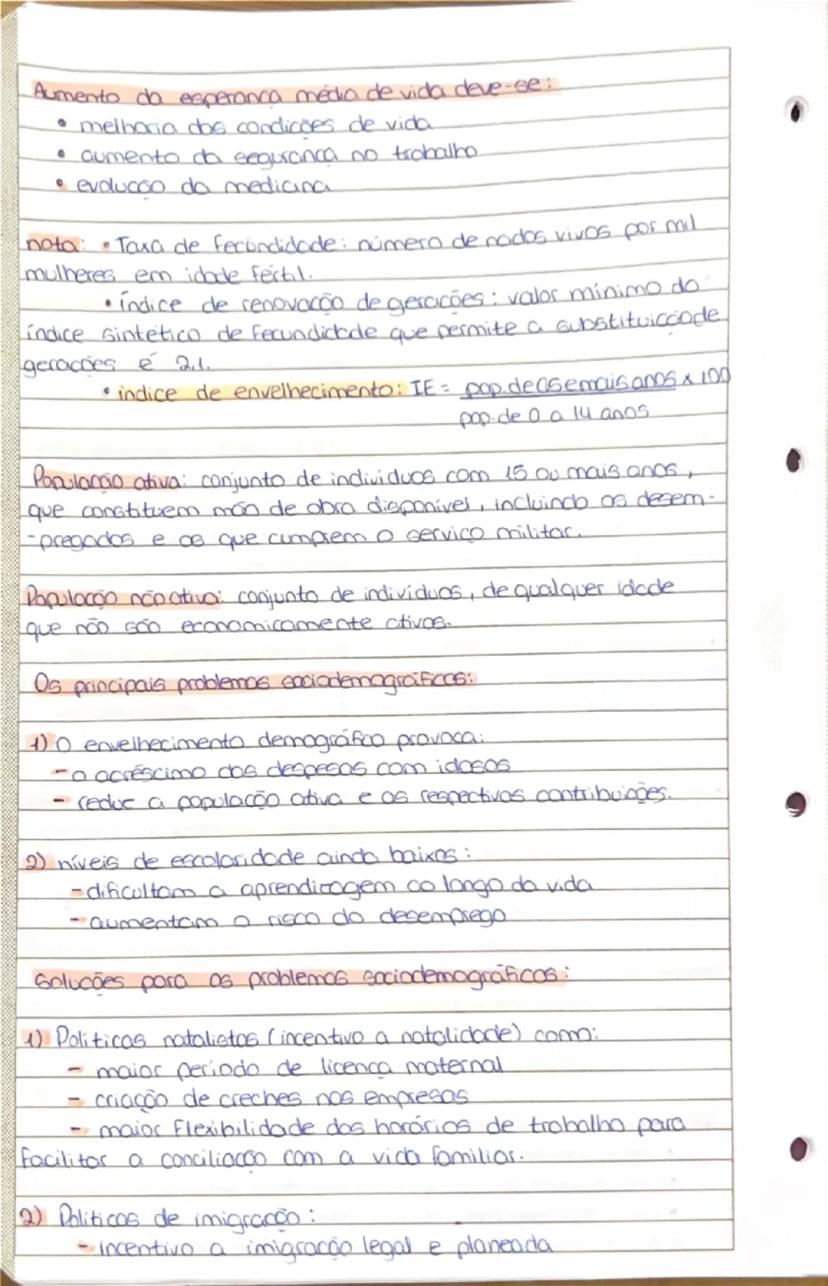 Aumento da esperança média de vida deve-se:
• melhoria das condições de vida
• aumento da segurança no trabalho
• evolução da medicina
nota: • Taxa de fecundidade: número de nados vivos por mil
mulheres em idade fértil.
• índice de renovação de gerações: valor mínimo do
índice sintético de fecundidade que permite a substituição de
gerações é 2,1.
• índice de envelhecimento: IE = pop. de 65 e mais anos x 100
pop. de 0 a 14 anos
População ativa: conjunto de indivíduos com 15 ou mais anos,
que constituem mão de obra disponível, incluindo os desem-
-pregados e os que cumprem o serviço militar.
População não ativa: conjunto de indivíduos, de qualquer idade
que não são economicamente ativos.
Os principais problemas sociodemográficos:
1) O envelhecimento demográfico provoca:
- o acréscimo das despesas com idosos
- reduz a população ativa e as respectivas contribuições.
2) níveis de escolaridade ainda baixos:
- dificultam a aprendizagem ao longo da vida
- aumentam o risco do desemprego
Soluções para os problemas sociodemográficos:
1) Políticas natalistas (incentivo a natalidade) como:
- maior período de licença maternal
- criação de creches nas empresas
- maior flexibilidade dos horários de trabalho para
facilitar a conciliação com a vida familiar.
2) Políticas de imigração:
- incentivo a imigração legal e planeada